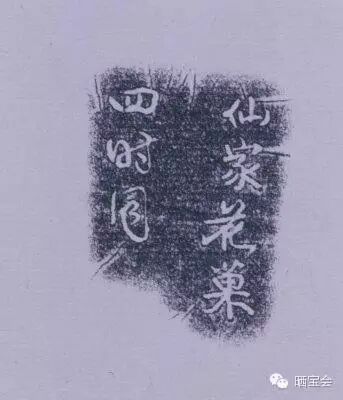 仙家花巢
四时
晒宝会